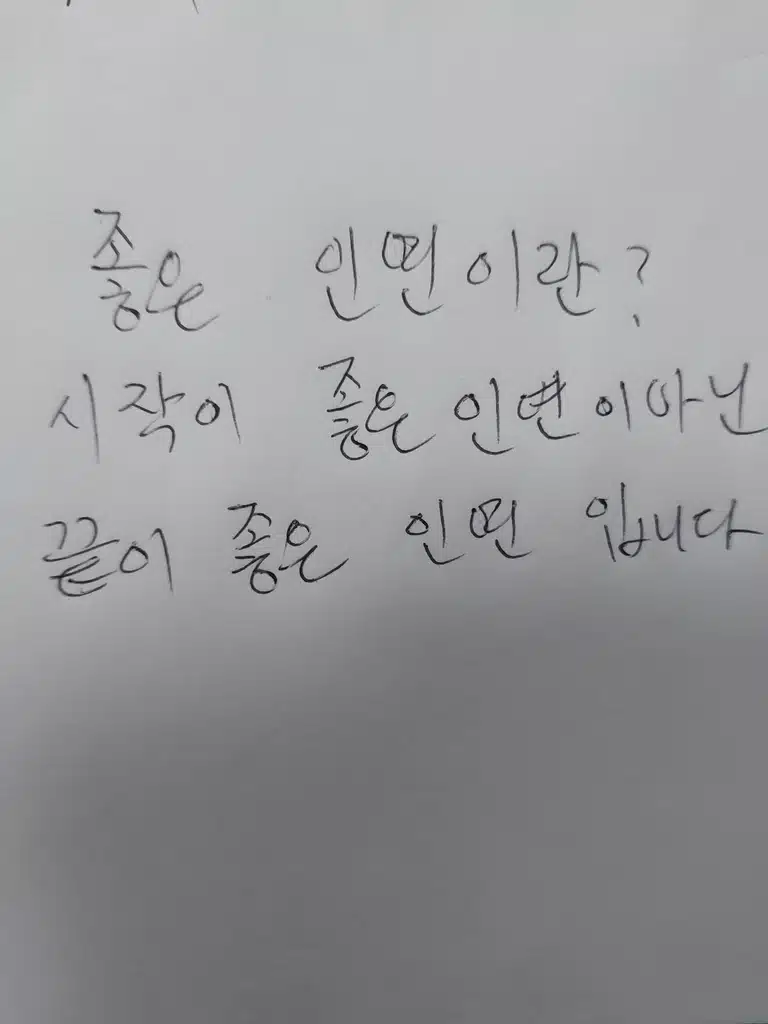 좋은 인연이란?
시작이 좋은 인연이아닌
끝이 좋은 인연 입니다